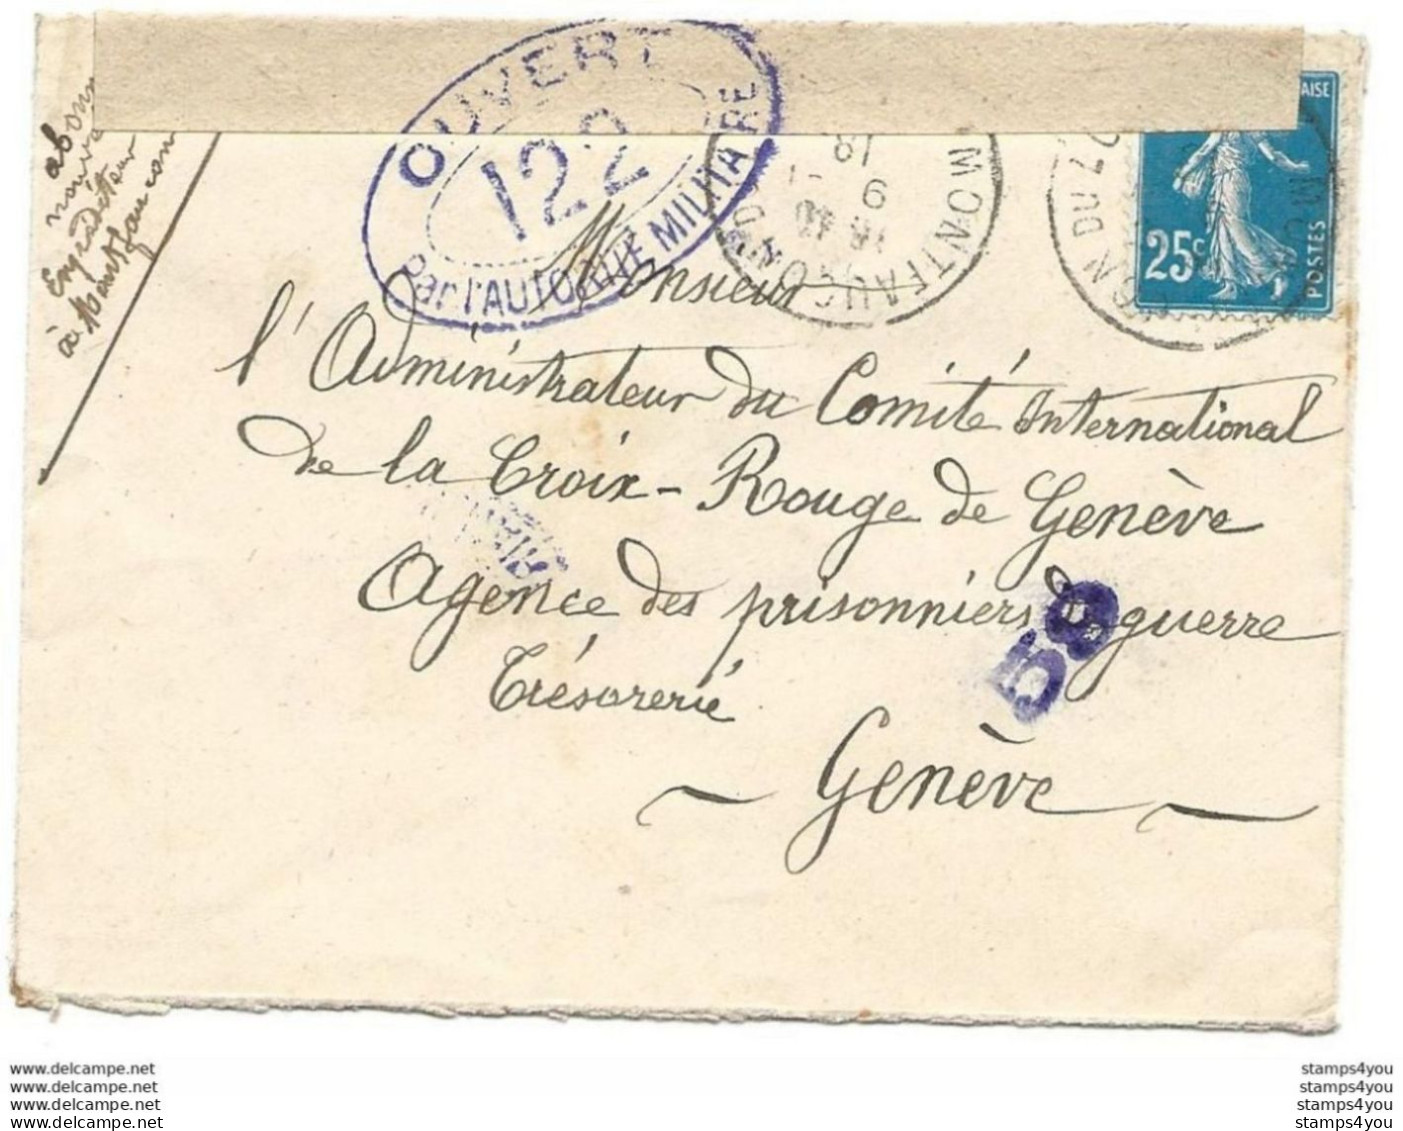 OUVERT
122
Par l'AUTORITÉ MILITAIRE
MONTFAUCON DU
AISE
25c
POSTES
Expéditeur
à Montfaucon
Monsieur
l'Administrateur du Comité International
de la Croix-Rouge de Genève
Agence des prisonniers de guerre
59
Trésorerie
Genève
www.delcampe.net
www.delcampe.net
www.delcampe.net
www.delcampe.net
stamps4you
stamps4you
stamps4you
stamps4you